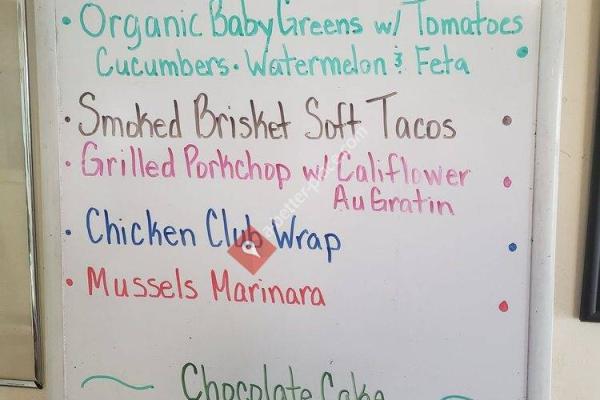 • Organic Baby Greens w/ Tomatoes
Cucumbers • Watermelon & Feta •
• Smoked Brisket Soft Tacos •
• Grilled Porkchop w/ Califlower •
Au Gratin
• Chicken Club Wrap •
• Mussels Marinara •
Chocolate Cake